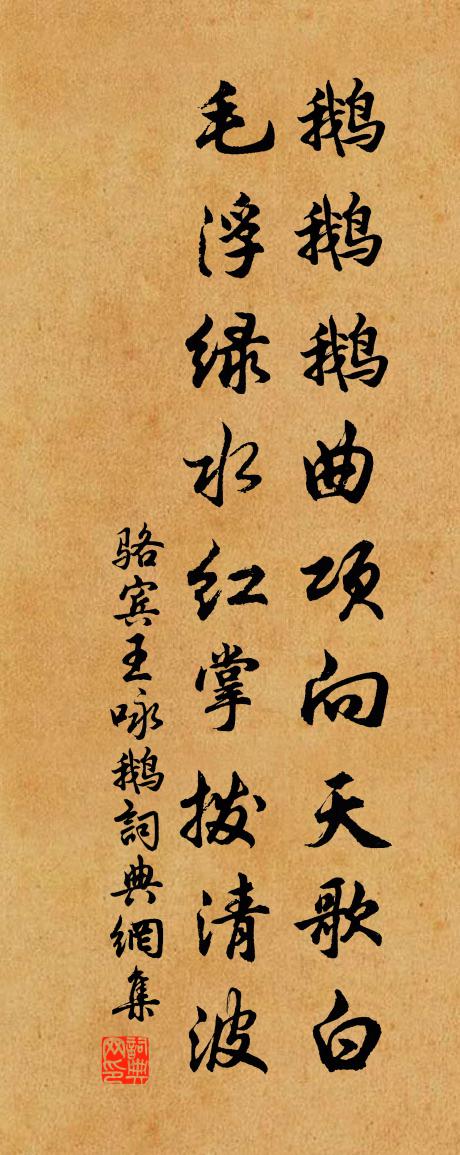 鹅鹅鹅曲项向天歌白
毛浮绿水红掌拨清波
骆宾王咏鹅詞典網集
詞典网印